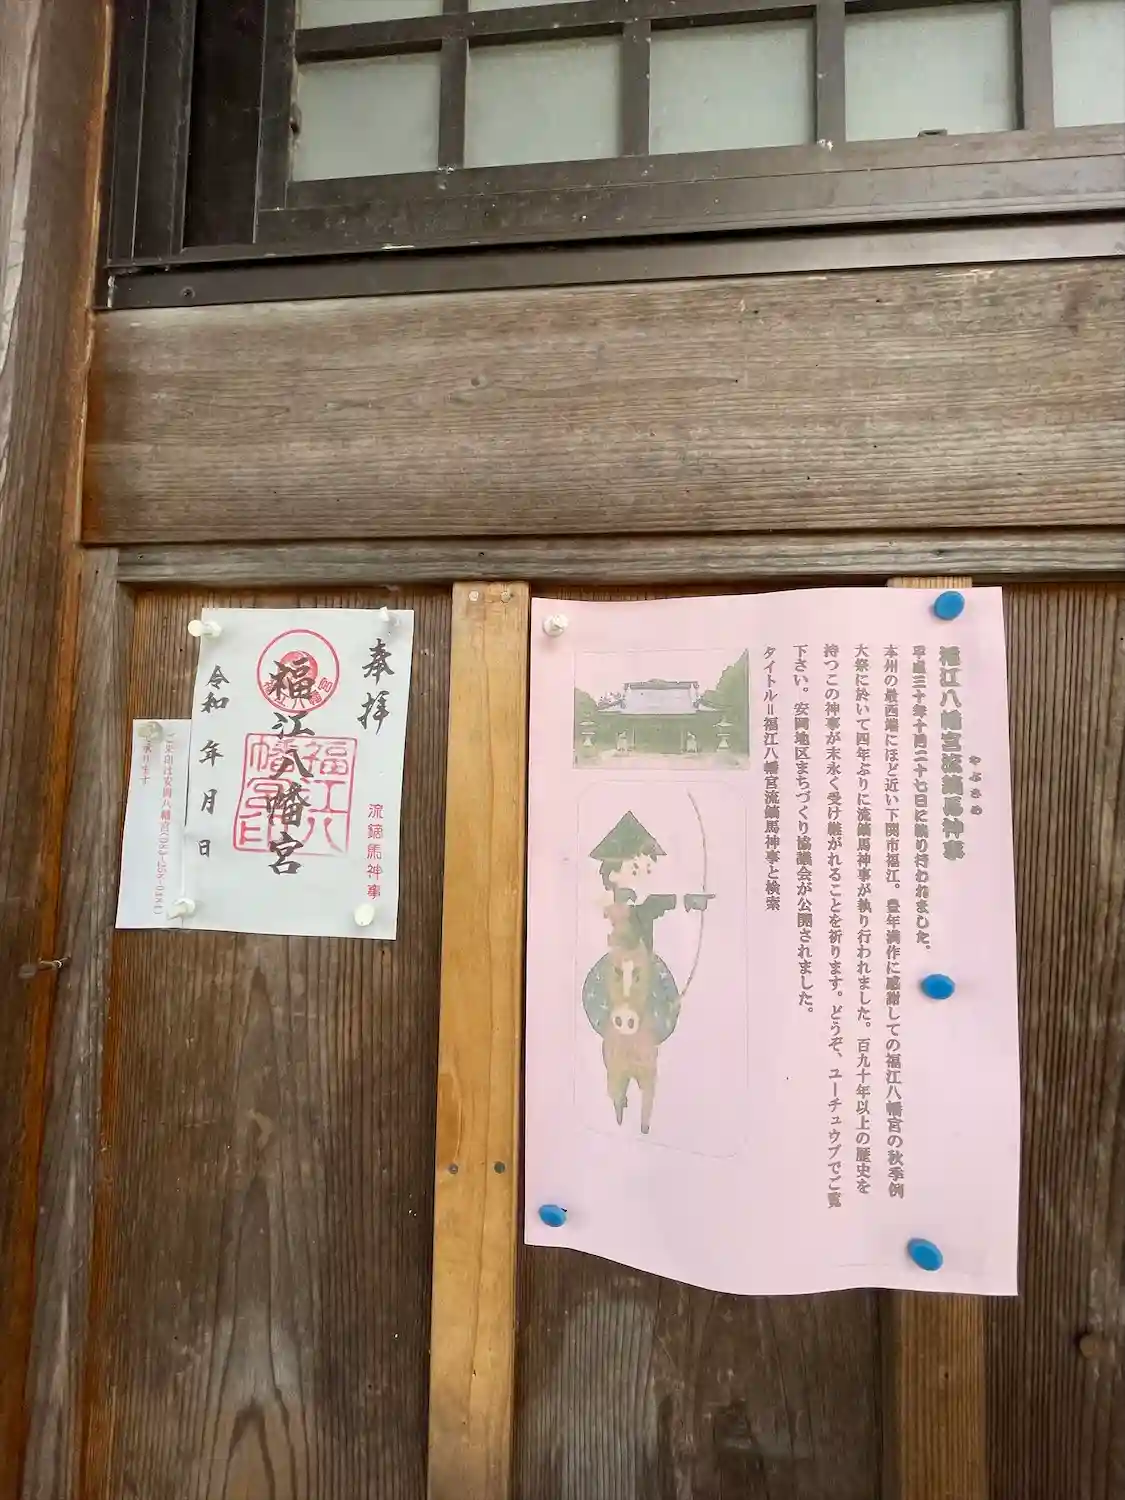 福江八幡宮流鏑馬神事
やぶさめ
平成三十年十月二十七日に執り行われました。
本州の最西端にほど近い下関市福江。豊年満作に感謝しての福江八幡宮の秋季例
大祭に於いて四年ぶりに流鏑馬神事が執り行われました。百九十年以上の歴史を
持つこの神事が末永く受け継がれることを祈ります。どうぞ、ユーチュウブでご覧
下さい。安岡地区まちづくり協議会が公開されました。
タイトル＝福江八幡宮流鏑馬神事と検索
奉拝
流鏑馬神事
福江八幡宮
福江八
幡宮印
令和 年 月 日
ご朱印は安岡八幡宮
承ります